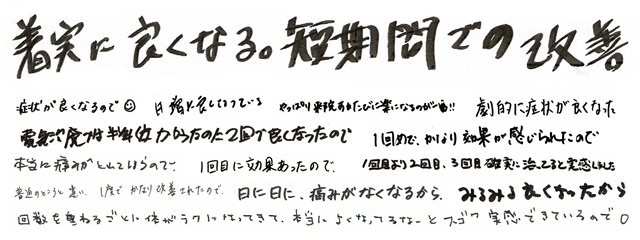 着実に良くなる。短期間での改善。
症状が良くなるので 日増に良くなっている やっぱり来院するたびに楽になるのが一番!! 劇的に症状が良くなった
2回で良くなったので 1回めで、かなり効果が感じられたので
本当に痛みがとれているので、 1回目に効果あったので、 1回目より2回目、3回目確実に治ってると実感しました
1度でかなり改善されたので、 日に日に、痛みがなくなるから、 みるみる良くなったから
回数を重ねるごとに体がラクになってきて、本当によくなってるなーとスゴク実感できているので